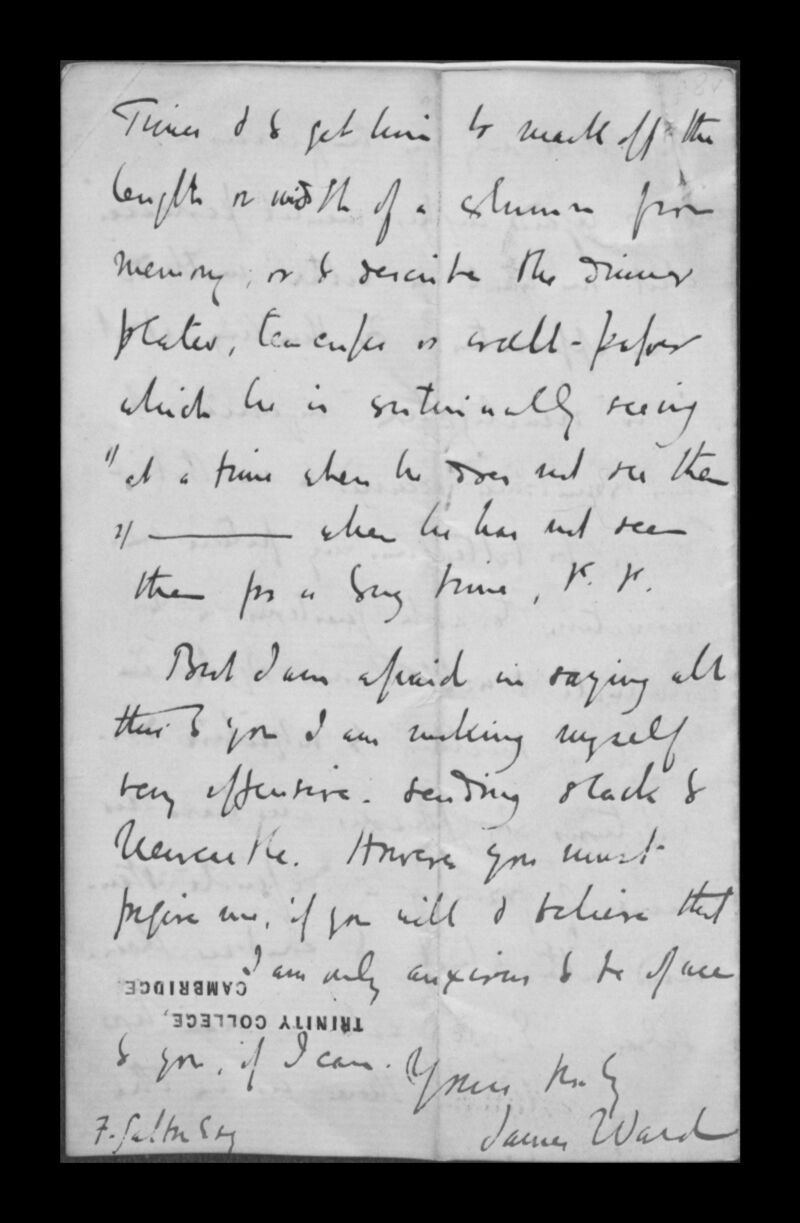 Times & to get him to mark off the
length or width of a column from
memory, or to describe the dinner
plates, teacups or wall-paper
which he is continually seeing
1/ at a time when he does not see them
2/ ——— when he has not seen
them for a long time,
But I am afraid in saying all
this to you I am making myself
very offensive – sending slack to
Newcastle. However you must
forgive me, if you will & believe that
I am only anxious to be of use
CAMBRIDGE.
TRINITY COLLEGE,
to you, if I can. Yours truly
F. Galton Esq James Ward